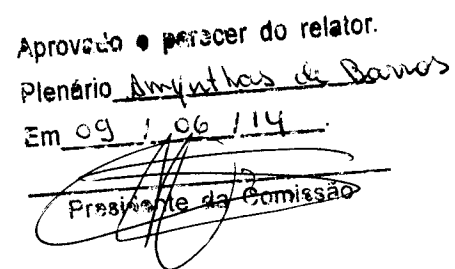 Aprovado o parecer do relator.
Plenário Amynthas de Barros
Em 09 / 06 / 14.
Presidente da Comissão